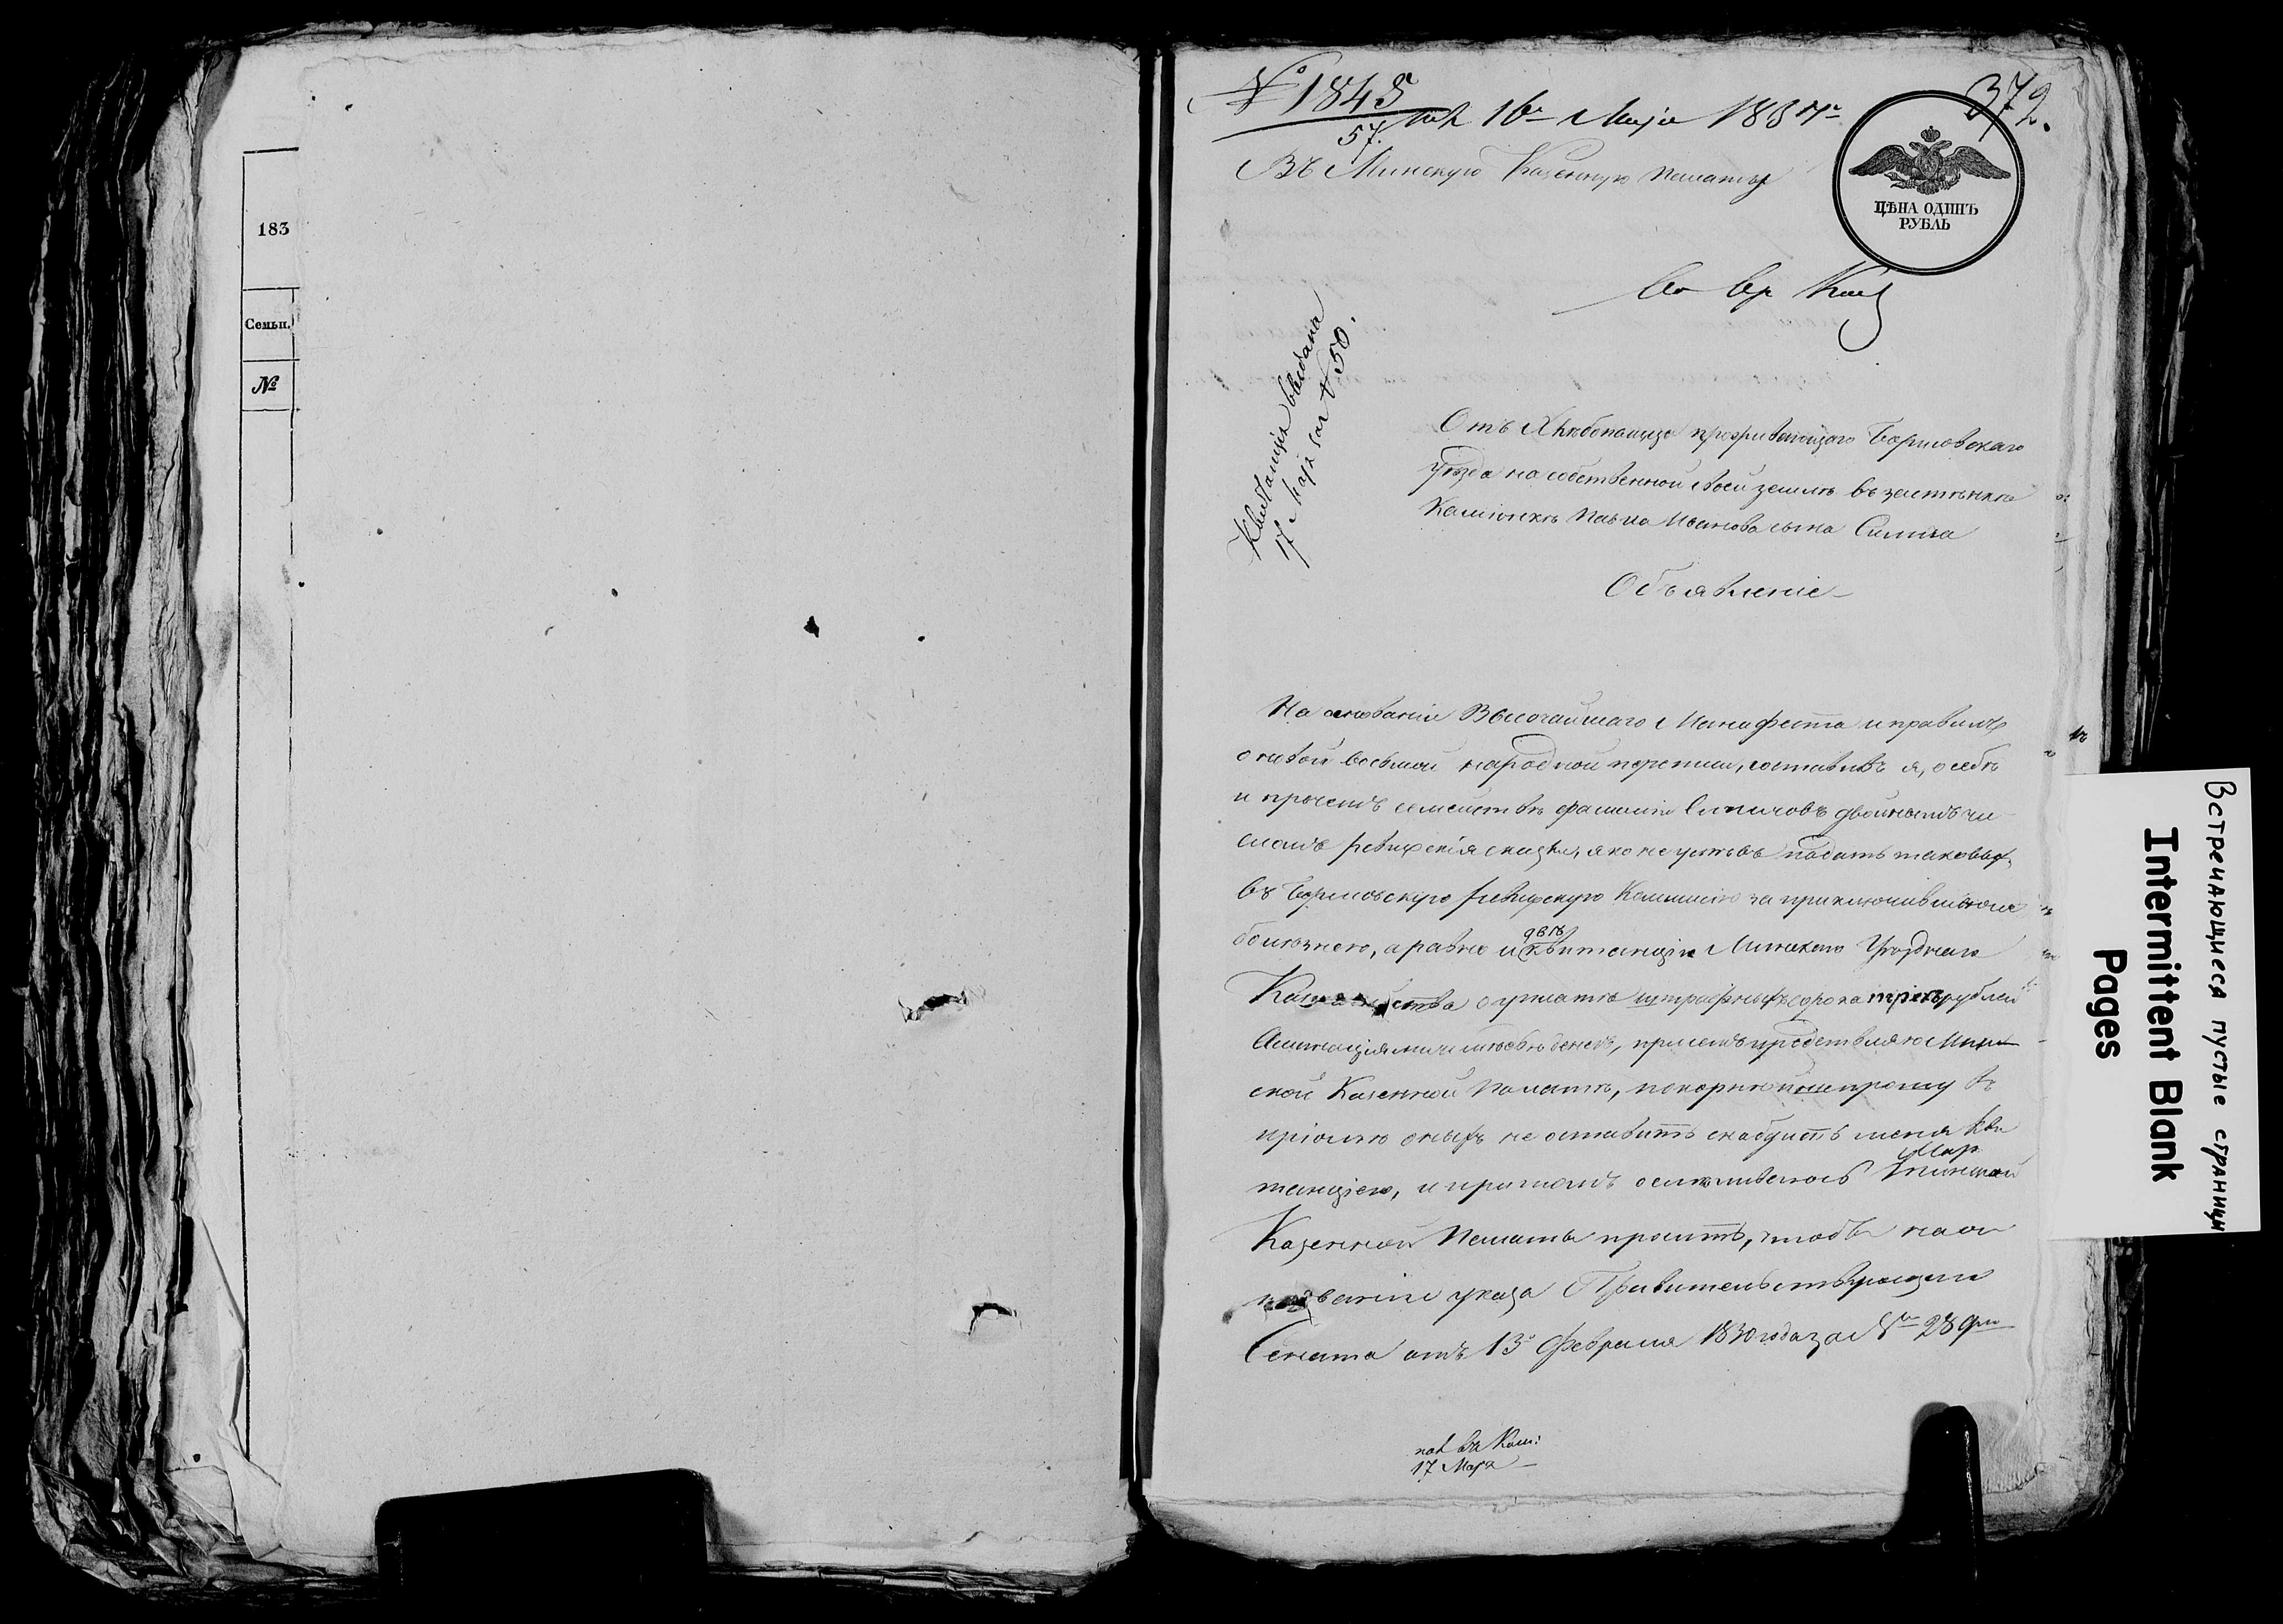 183
Семьи.
№
№ 1845
57.
16го Маія 1834го
372.
Въ Минскую Казенную Палату
ЦѢНА ОДИНЪ
РУБЛЬ
Квитанція выдана
17 Маія за № 50.
Отъ Хлѣбопашца проживающаго Борисовскаго
Уѣзда на собственной своей землѣ въ застѣнкѣ
Павла Иванова сына
Объявленіе
На основаніи Высочайшаго Манифеста и правилъ
о новой восьмой народной переписи, составивъ я, о себѣ
и прочемъ семействѣ фамиліи двойнымъ чи
сломъ ревизскія сказки, яко не успѣвъ подать таковыхъ
въ Борисовскую Ревизскую Комиссію за приключившеюся
болѣзнею, а равно и двѣ квитанціи Минскаго Уѣзднаго
Казначейства о уплатѣ штрафныхъ сорока трехъ рублей
Ассигнаціями денегъ, при семъ представляю Мин
ской Казенной Палатѣ, покорнѣйше прошу въ
пріемѣ оныхъ не оставить снабдить меня Кви
танціею, и притомъ осмѣливаюсь Минской
Казенной Палаты просить, чтобъ на ос
нованіи указа Правительствующаго
Сената отъ 13го Февраля 1830 года за 28
пол въ Ком:
17 Мая
Встречающиеся пустые страницы
Intermittent Blank
Pages